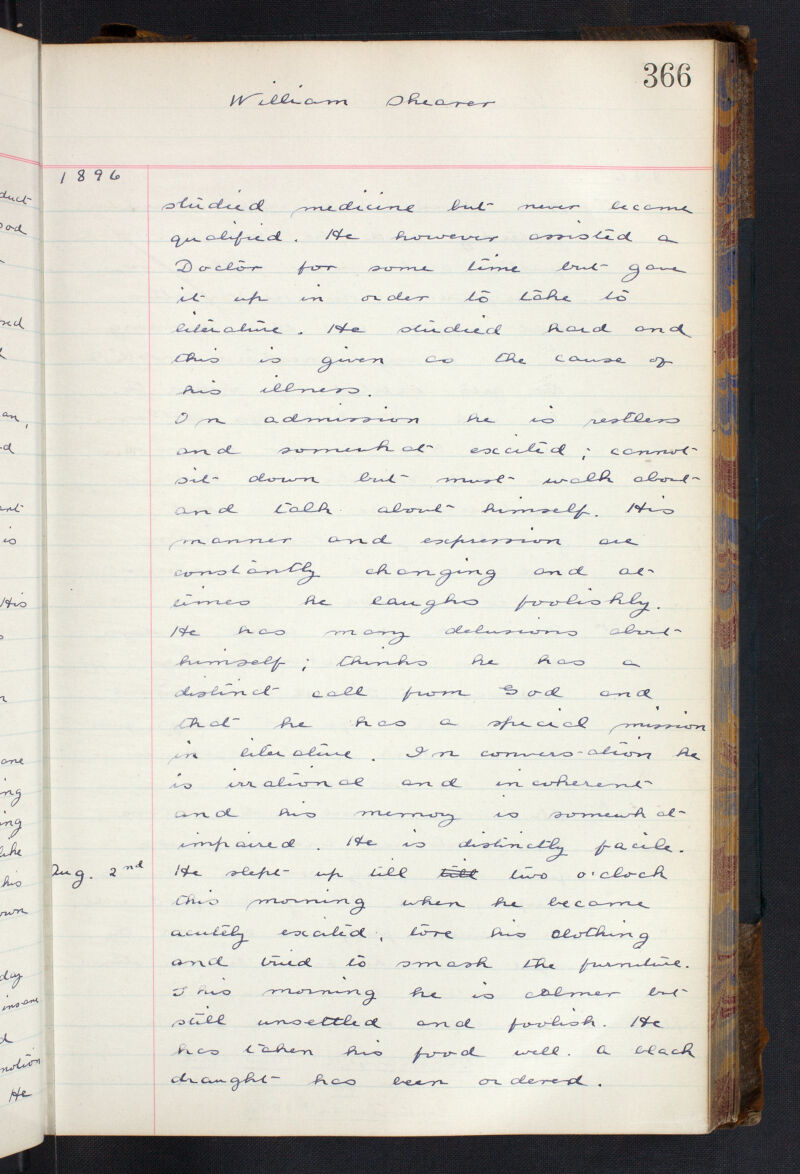 366
William Shearer
1896
studied medicine but never became
qualified. He however assisted a
Doctor for some time but gave
it up in order to take to
literature. He studied hard and
this is given as the cause of
his illness.
On admission he is restless
and somewhat excited; cannot
sit down but must walk about
and talk about himself. His
manner and expression are
constantly changing and at
times he laughs foolishly.
He has many delusions about
himself; thinks he has a
distinct call from God and
that he has a special mission
in literature. In conversation he
is irrational and incoherent
and his memory is somewhat
impaired. He is distinctly facile.
Aug. 2nd He slept up till till two o'clock
this morning when he became
acutely excited, tore his clothing
and tried to smash the furniture.
This morning he is calmer but
still unsettled and foolish. He
has taken his food well. A black
draught has been ordered.